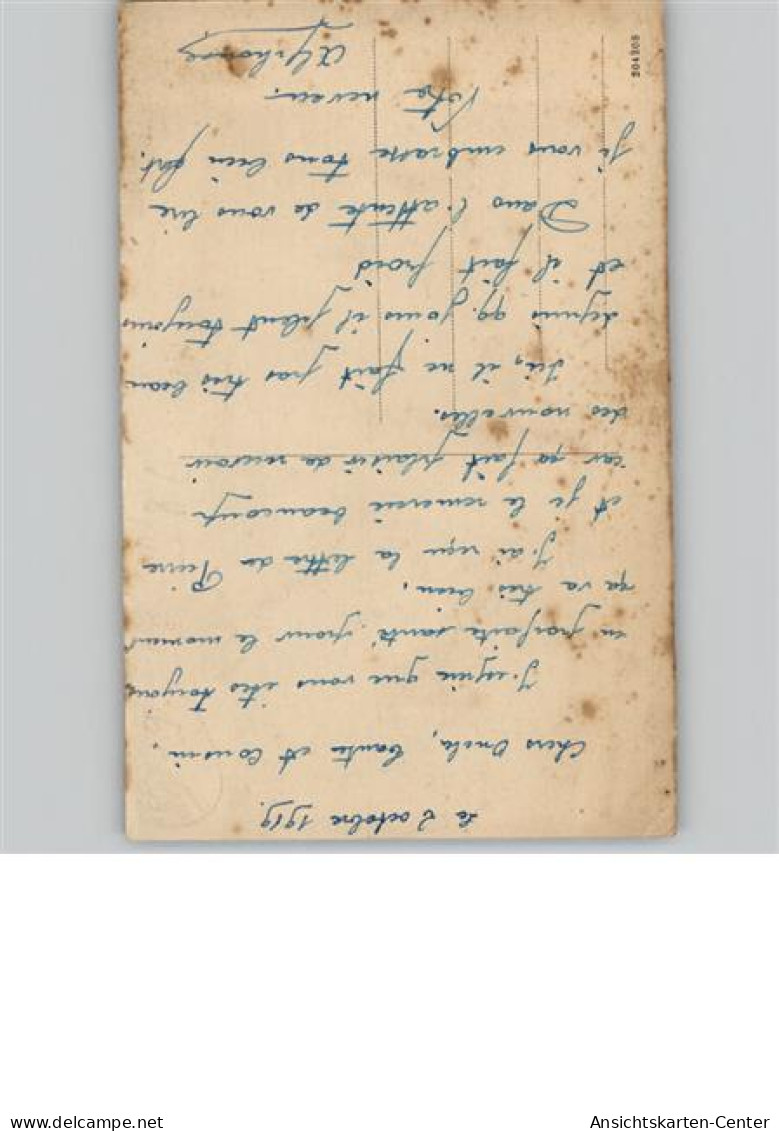 Le 2 octobre 1919.
Chers Oncle, Tante et Cousin,
J'espère que vous êtes toujours
en parfaite santé, pour le moment
ça va très bien,
J'ai reçu la lettre de Pierre
et je le remercie beaucoup
car ça fait plaisir de recevoir
des nouvelles.
Ici, il ne fait pas très beau
depuis qq. jours il pleut toujours
et il fait froid
Dans l'attente de vous lire
Je vous embrasse tous bien fort.
Votre neveu.
Alphonse
204208
www.oldthing.de
Ansichtskarten-Center